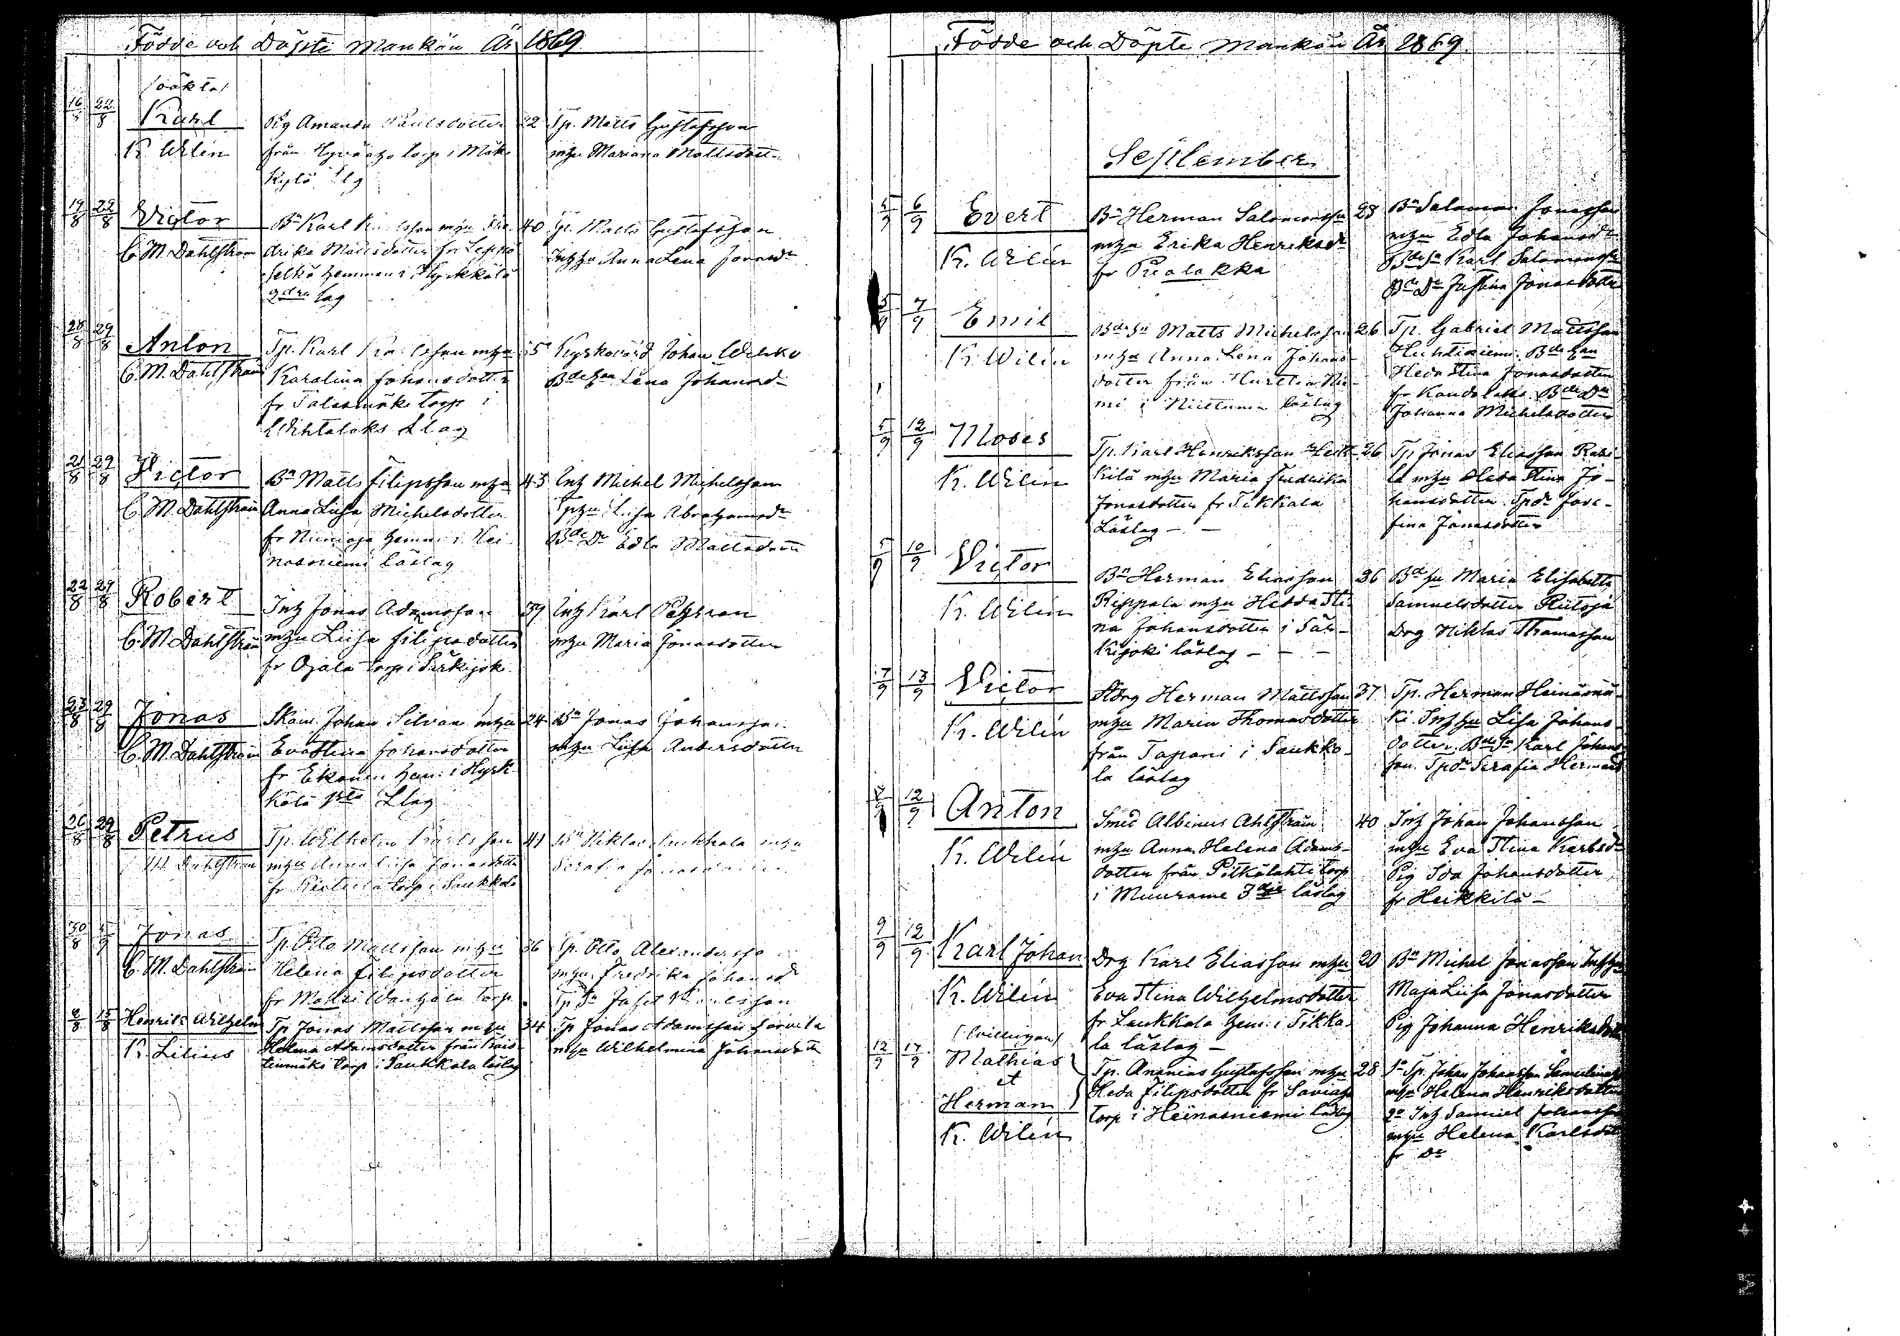 Födde och Döpte Mankön År 1869
(oäkta)
16/8 22/8 Karl
K. Wilén
Pig Amanda Paulsdotter
från torp i
22
Tp. Matts Gustafsson
mhu Mariana Mattsdott
19/8 22/8 Victor
C. M. Dahlström
Bn Karl mhu Fre
drika Mattsdotter fr
hemman i Hyrkkölä
2dra lag
40
Tp. Matts Gustafsson
Inhhu Anna Lena Jonasdr
28/8 29/8 Anton
C. M. Dahlström
Tp. Karl Karlsson mhu
Karolina Johansdotter
fr torp i
Llag
Kyrkovärd Johan
Bdehan Lena Johansd
21/8 29/8 Victor
C. M. Dahlström
Bn Matts Filipsson mhu
Anna Lisa Michelsdotter
fr hemm. i Hei
nasniemi läslag
43
Inh Michel Michelsson
Tphu Lisa Abrahamsdr
Bde Dr Edla Mattsdott
22/8 29/8 Robert
C. M. Dahlström
Inh Jonas Adamsson
mhu Lisa Filipsdotter
fr Ojala torp i Särkijok
39
Inh Karl Pehrson
mhu Maria Jonasdotter
23/8 29/8 Jonas
C. M. Dahlström
Skom. Johan Silvan mhu
Eva Stina Johansdotter
fr Ekonen hem. i Hyrk
kölä 1sta Llag
24
Bn Jonas Johansson
mhu Lisa Andersdotter
26/8 29/8 Petrus
M. Dahlström
Tp. Wilhelm Karlsson
mhu Anna Lisa Jonasdotter
fr torp i Saukkola
41
Bn Niklas mhu
Serafia Jonasdotter
30/8 5/9 Jonas
C. M. Dahlström
Tp. Otto Mattsson mhu
Helena Filipsdotter
fr torp
36
Tp. Otto Alexandersso
mhu Fredrika Johansdr
Tp Sn
8/8 15/8 Henrik Wilhelm
K. Lilius
Tp Jonas Mattsson mhu
Helena Adamsdotter från
torp i Saukkola läslag
34
Tp Jonas Adamsson
mhu Wilhelmina Johansdott
Födde och Döpte Mankön År 1869
September
5/9 6/9 Evert
K. Wilén
Bn Herman Salomonsson
mhu Erika Henriksdr
fr Pialakka
23
Bn Salomon Jonasson
mhu Edla Johansdr
Bde Sn Karl Salomonsson
Bde Dr Justina Jonasdotter
5/9 7/9 Emil
K. Wilén
Bde Sn Matts Michelsson
mhu Anna Lena Johans-
dotter från
mi i Niittuma läslag
26
Tp. Gabriel Mattsson
Huhtiniemi. Bdehan
Heda Stina Jonasdotter
fr Bde Dr
Johanna Michelsdotter
5/9 12/9 Moses
K. Wilén
Tp. Karl Henriksson Heik-
kilä mhu Maria Fredrika
Jonasdotter fr Tikkala
Läslag - -
26
Tp Jonas Eliasson
la mhu Heda Stina Jo-
hansdotter. Tpdr Jose-
fina Jonasdotter
5/9 10/9 Victor
K. Wilén
Bn Herman Eliasson
Rippala mhu Hedda Sti-
na Johansdotter i Sär-
kijoki läslag - - -
36
Maria Elisabetta
Samuelsdotter
Drg Niklas Thomasson
7/9 13/9 Victor
K. Wilén
Herman Mattsson
mhu Maria Thomasdotter
från Tapani i Saukko-
la läslag
37
Tp. Herman Heinämä-
ki. Inhhu Lisa Johans
dotter. Bde Sn Karl Johans
son. Tpdr Serafia Hermansd
7/9 12/9 Anton
K. Wilén
Smed Albinus Ahlström
mhu Anna Helena Adams-
dotter från Pitkälahti torp
i Muurame 3dje läslag
40
Inh Johan Johansson
mhu Eva Stina Karlsdr
Pig Ida Johansdotter
fr Heikkilä -
9/9 12/9 Karl Johan
K. Wilén
Drg Karl Eliasson mhu
Eva Stina Wilhelmsdotter
fr Laukkala hem. i Tikka-
la läslag -
20
Bn Michel Jonasson Inhhu
Maja Lisa Jonasdotter
Pig Johanna Henriksdott
(tvillingar)
12/9 17/9 Mathias
et
Herman
K. Wilén
Tp. Ananias Gustafsson mhu
Heda Filipsdotter fr
torp i Heinasniemi läslag
28
1o Tp. Johan Johansson
mhu Helena Henriksdotter
2o Inh Samuel Johansson
mhu Helena Karlsdott
fr Do